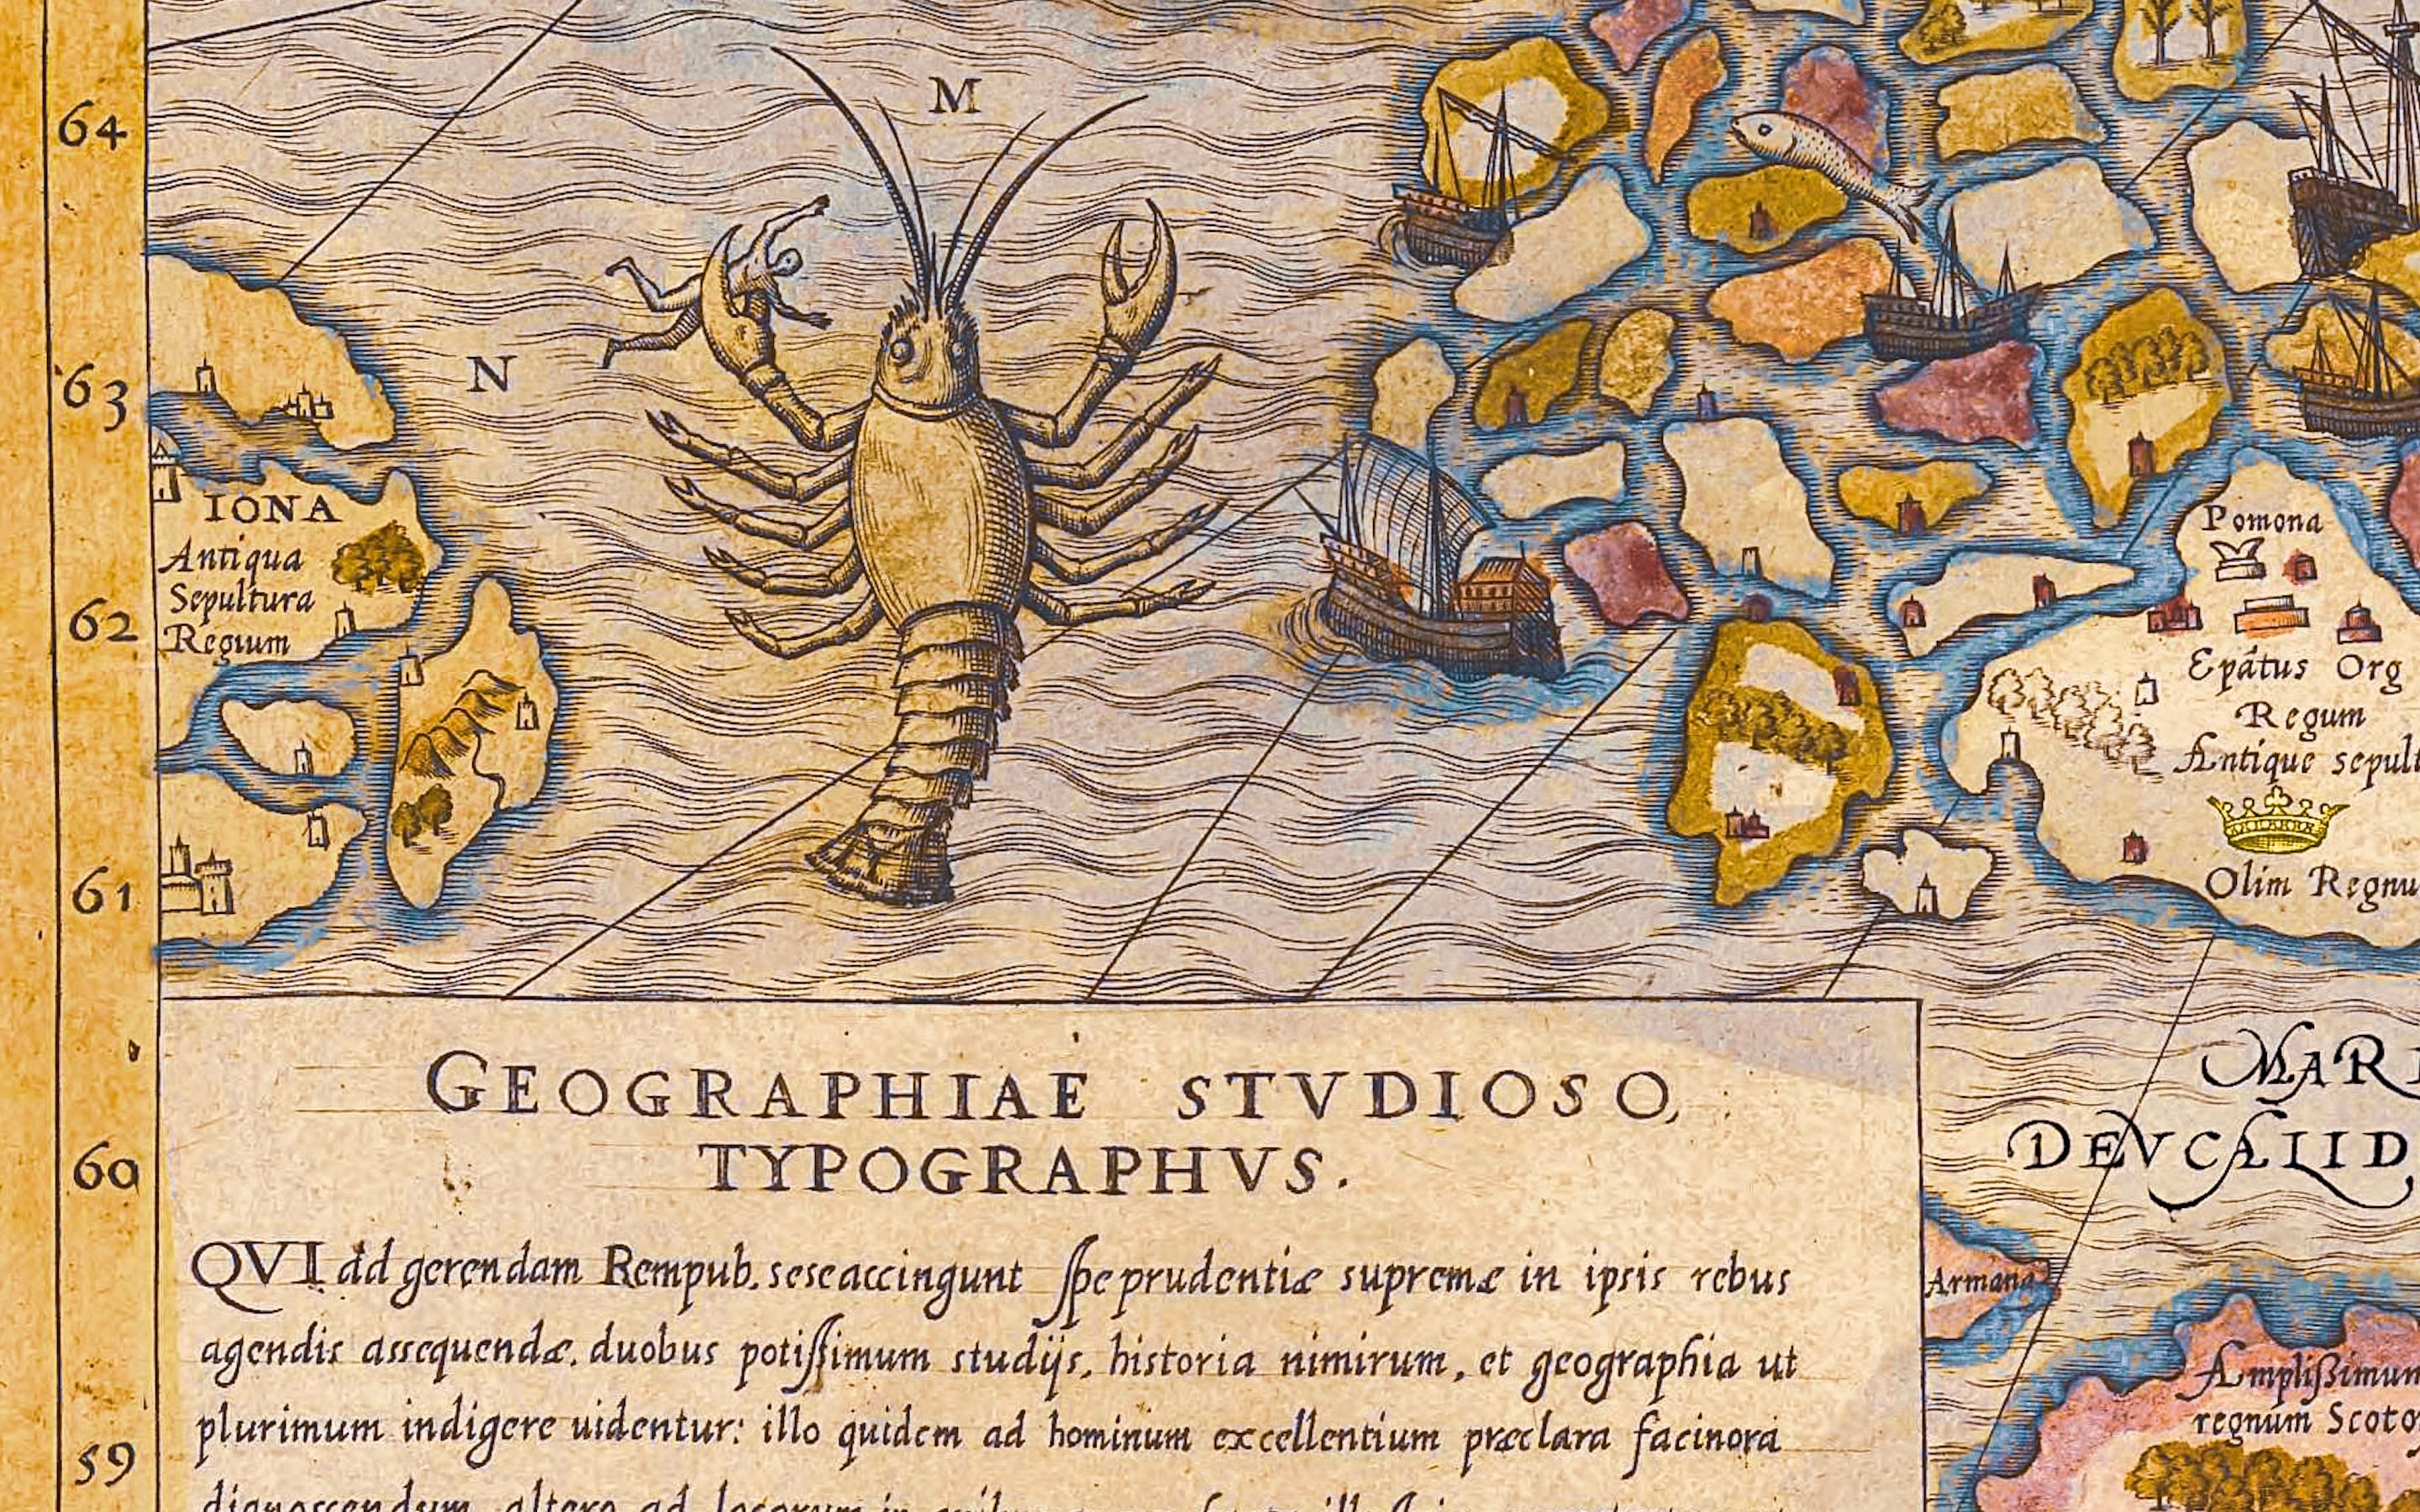 64
63
62
61
60
59
M
N
IONA
Antiqua
Sepultura
Regium
Pomona
Epātus Org
Regum
Antique sepult
Olim Regnu
GEOGRAPHIAE STVDIOSO,
TYPOGRAPHVS.
QVI ad gerendam Rempub. sese accingunt spe prudentiæ supremæ in ipsis rebus
agendis assequendæ, duobus potissimum studijs, historia nimirum, et geographia ut
plurimum indigere uidentur: illo quidem ad hominum excellentium præclara facinora
MAR
DEVCALID
Armana
Amplißimum
regnum Scoto